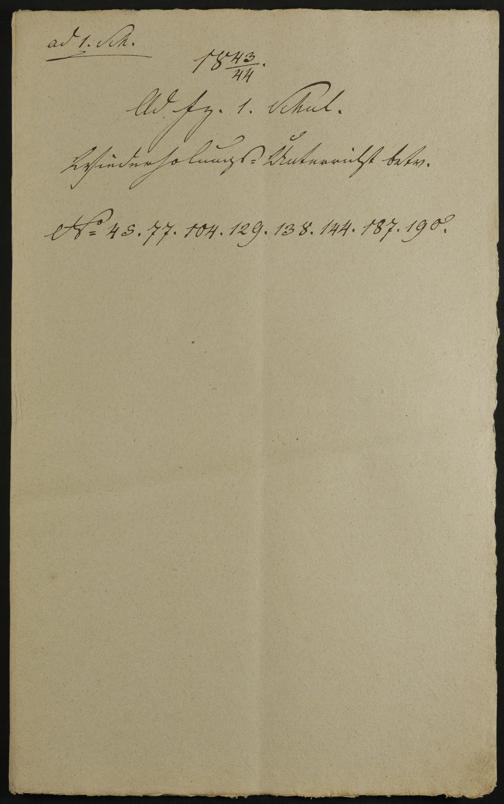 ad 1. Sch.
1843/44.
Ad fz. 1. Schul.
Wiederholungs-Unterricht betr.
No 43. 77. 104. 129. 138. 144. 187. 190.